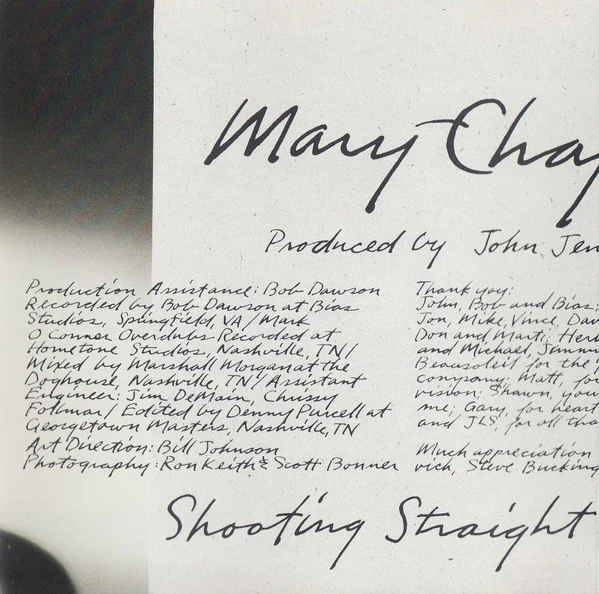 Mary Chap
Produced by John Jen
Production Assistance: Bob Dawson
Recorded by Bob Dawson at Bias
Studios, Springfield, VA / Mark
O Connor Overdubs Recorded at
Hometone Studios, Nashville, TN /
Mixed by Marshall Morgan at the
Doghouse, Nashville, TN / Assistant
Engineer: Jim DeMain, Chrissy
Follmar / Edited by Denny Purcell at
Georgetown Masters, Nashville, TN
Art Direction: Bill Johnson
Photography: Ron Keith & Scott Bonner
Thank you:
John, Bob and Bias;
Jon, Mike, Vince, Dav
Don and Marti; Her
and Michael, Jimmi
Beausoleil for the
Matt, for
vision; Shawn, you
me; Gary, for heart
and JLS, for all tha
Much appreciation
vich, Steve Bucking
Shooting Straight